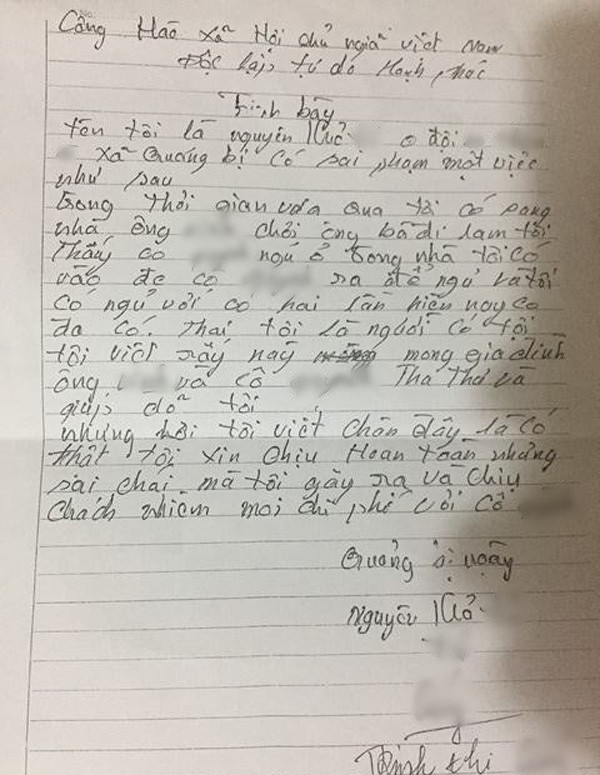 Công Hao Xã Hội chủ nghiã việt Nam
Độc lập, tự do Hạnh, phúc
Trình bày
tên tôi là nguyên Khả o đội
xã Quảng bị có sai phạm một việc
như sau
trong thời gian vưa qua tôi có sang
nhà ông chơi ông bà đi lam tôi
Thấy co ngủ ở trong nhà tôi có
vào đe co ra để ngủ và tôi
có ngủ với cô hai lần hiên nay co
đa có. Thai tôi là người có tội
tội viết giấy nay mong gia đình
ông và cô Tha Thư và
giúp, đỡ tôi
nhưng hơi tôi viết chên đây là có
thật tội xin chịu Hoan toàn nhưng
sai chai mà tôi gây ra và chịu
chách nhiêm moi chi phí với cô
Quảng bị ngày
Nguyên Khả
Trịnh thi